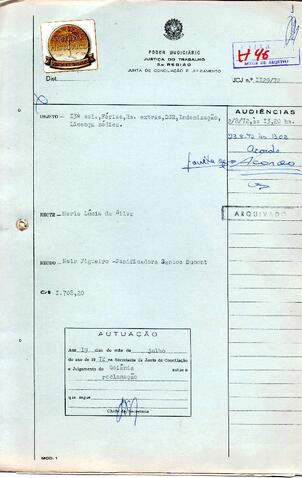 PODER JUDICIÁRIO
JUSTIÇA DO TRABALHO
3a. REGIÃO
JUNTA DE CONCILIAÇÃO E JULGAMENTO
H 46
Dist.
JCJ n.º 1129/72
OBJETO - 13º sal., Férias, Hs. extras, DSR, Indenização,
Licença médica.
AUDIÊNCIAS
2/8/72, às 13,20 hs.
Acordo
Acordo
ARQUIVADO
RECTE - Maria Lúcia da Silva
RECDO - Nair Figueiro - Panificadora Santos Dumont
Cr$ 1.708,20
AUTUAÇÃO
Aos 19 dias do mês de julho
do ano de 19 72 na Secretaria da Junta de Conciliação
e Julgamento de Goiânia autuo a
reclamação
que segue
Chefe da Secretaria
MOD. 1